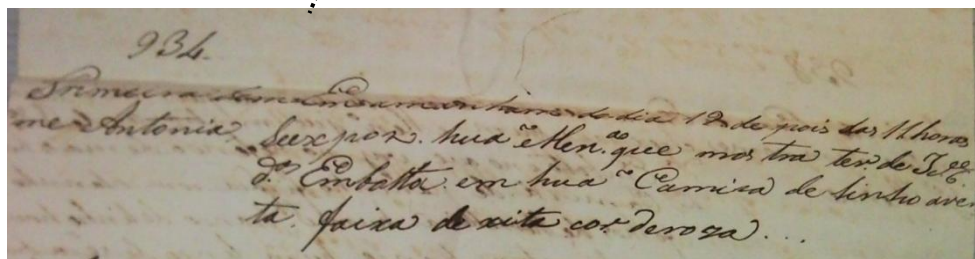 934.
Primeira em amanhame do dia 12 de pois das 11 horas
me Antonia Seexpoz. hua Men.ª que mos tra ter. de Id.e
d.s Embolta em hua Camiza de linho aver
ta. faixa de xita cor. deroza...